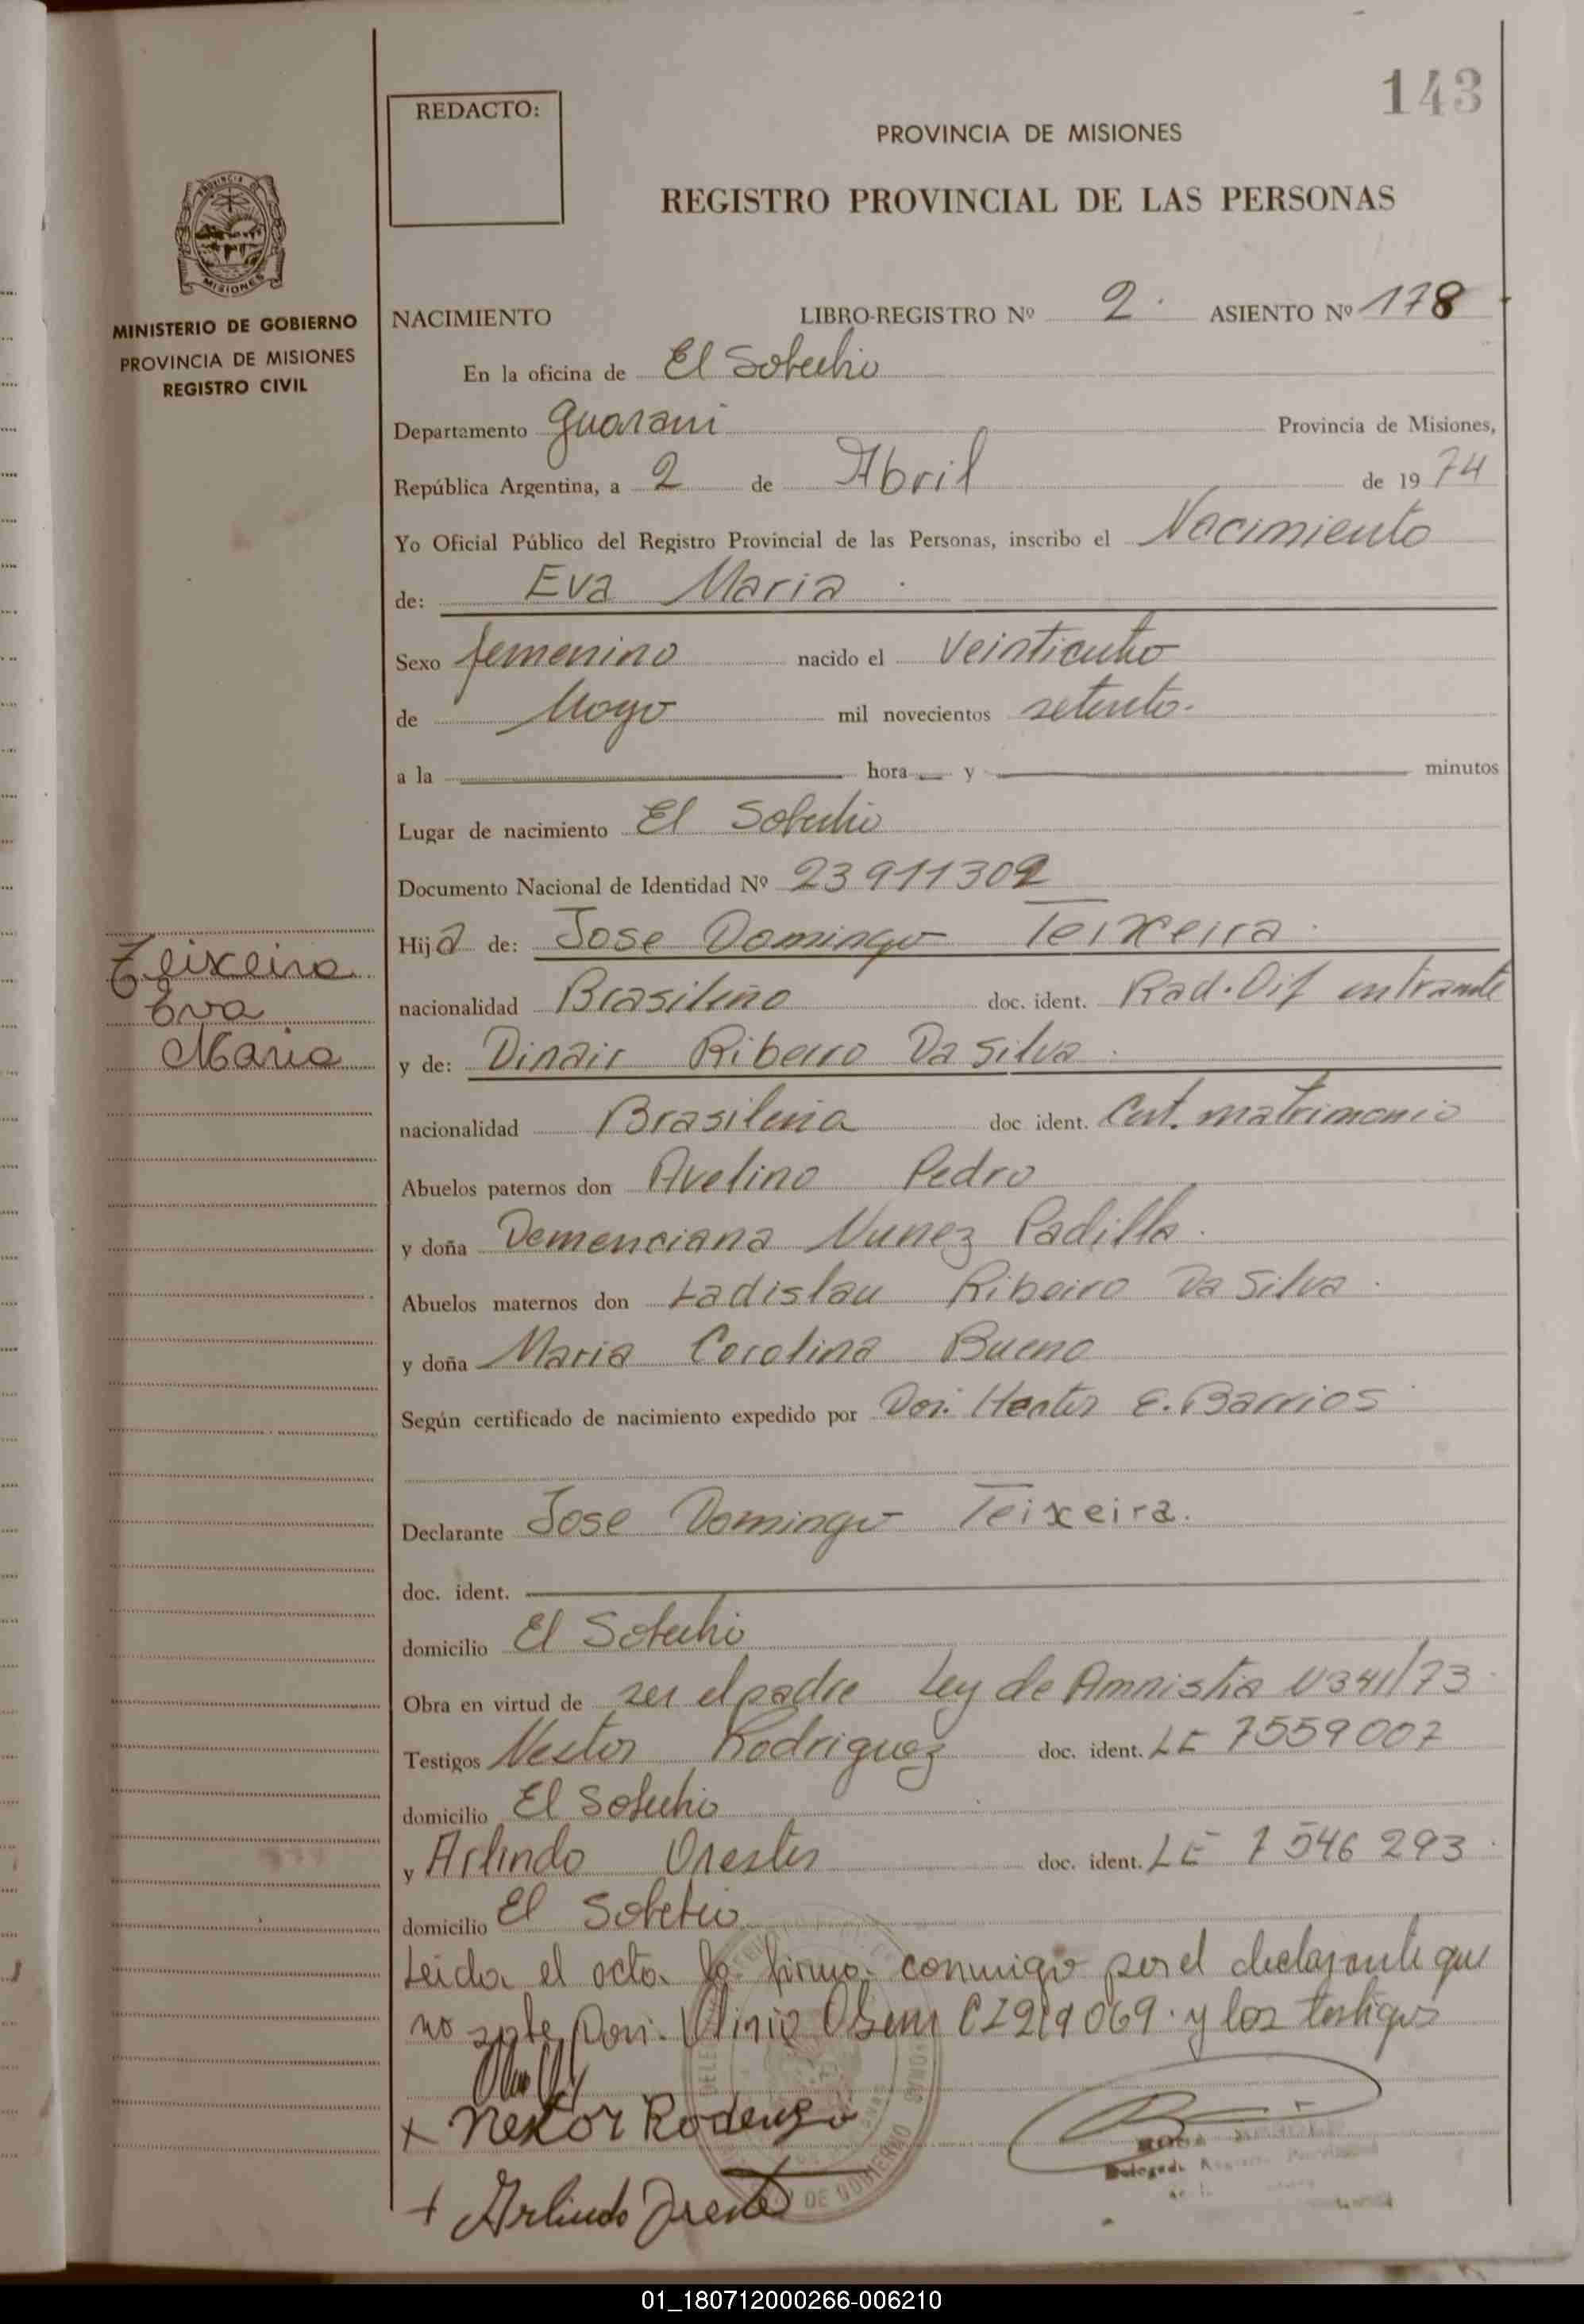 143
REDACTO:
PROVINCIA DE MISIONES
REGISTRO PROVINCIAL DE LAS PERSONAS
PROVINCIA DE
MISIONES
MINISTERIO DE GOBIERNO
PROVINCIA DE MISIONES
REGISTRO CIVIL
NACIMIENTO LIBRO-REGISTRO Nº 2 ASIENTO Nº 178
En la oficina de El Soberbio
Departamento Guarani Provincia de Misiones,
República Argentina, a 2 de Abril de 1974
Yo Oficial Público del Registro Provincial de las Personas, inscribo el Nacimiento
de: Eva Maria
Sexo femenino nacido el Veinticuatro
de Mayo mil novecientos setenta.
a la hora y minutos
Lugar de nacimiento El Soberbio
Documento Nacional de Identidad Nº 23911302
Hija de: Jose Domingo Teixeira
Teixeira
Eva
Maria
nacionalidad Brasileño doc. ident. Rad. Dif entrante
y de: Dinair Ribeiro Da Silva
nacionalidad Brasileña doc ident. Cert. matrimonio
Abuelos paternos don Avelino Pedro
y doña Demenciana Nunez Padilla
Abuelos maternos don Ladislau Ribeiro Da Silva
y doña Maria Carolina Bueno
Según certificado de nacimiento expedido por E. Barrios
Declarante Jose Domingo Teixeira.
doc. ident.
domicilio El Soberbio
Obra en virtud de ser el padre Ley de Amnistia
Testigos Nestor Rodriguez doc. ident. LE 7559007
domicilio El Soberbio
y Arlindo Orestes doc. ident. LE 7546293
domicilio El Soberbio
Leida el acta la firma conmigo por el declarante que
no sabe y los testigos
x Nestor
+ Arlindo
DE GOBIERNO
01_180712000266-006210